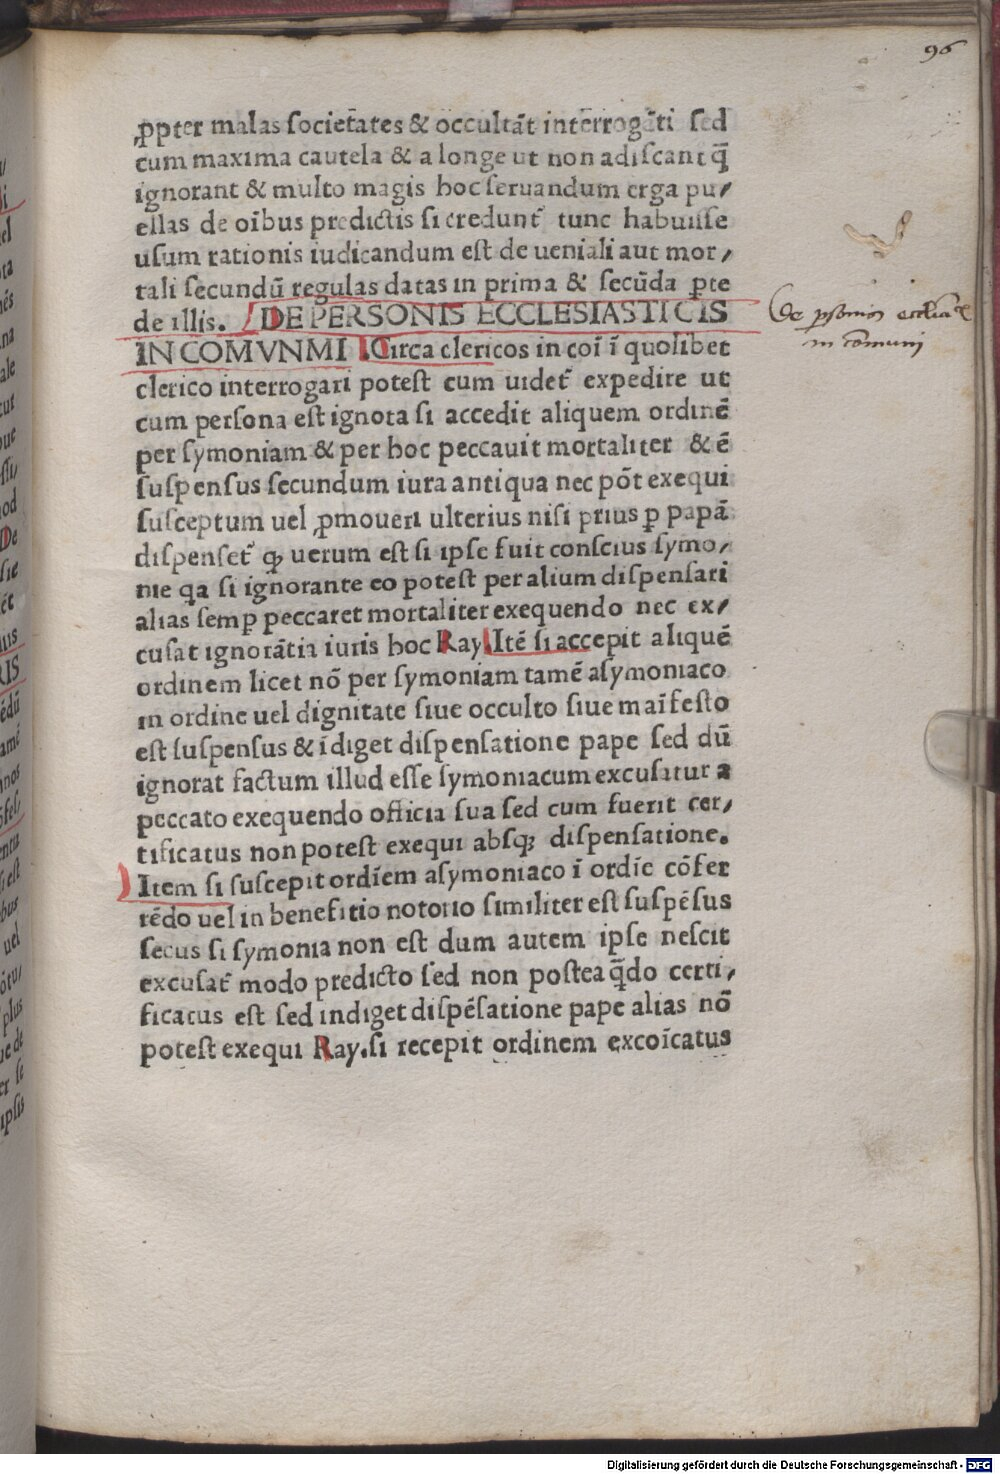 96
ꝓpter malas societ̄ates & occultāt inter̄rogāti sed
cum maxima cautela & a longe ut non adiscant q̄
ignorant & multo magis hoc seruandum erga pu/
ellas de oībus predictis si credunt̄ tunc habuisse
usum rationis iudicandum est de ueniali aut mor/
tali secundū regulas datas in prima & secūda ꝑte
de illis. DE PERSONIS ECCLESIASTICIS
IN COMVNMI Circa clericos in coī ī quolibet
clerico interrogari potest cum uidet̄ expedire ut
cum persona est ignota si accedit aliquem ordinē
per symoniam & per hoc peccauit mortaliter & ē
suspensus secundum iura antiqua nec pōt exequi
susceptum uel ꝓmoueri ulterius nisi prius ꝑ papā
dispenset̄ ꝙ uerum est si ipse fuit conscius symo/
nie qa si ignorante eo potest per alium dispensari
alias semꝑ peccaret mortaliter exequendo nec ex/
cusat ignorātia iuris hoc Ray. Itē si accepit aliquē
ordinem licet nō per symoniam tamē asymoniaco
in ordine uel dignitate siue occulto siue maīfesto
est suspensus & īdiget dispensatione pape sed dū
ignorat factum illud esse symoniacum excusatur a
peccato exequendo officia sua sed cum fuerit cer/
tificatus non potest exequi absqꝫ dispensatione.
Item si suscepit ordīem asymoniaco ī ordīe cōfer
rēdo uel in benefitio notorio similiter est suspēsus
secus si symonia non est dum autem ipse nescit
excusat̄ modo predicto sed non postea q̄do certi/
ficatus est sed indiget dispēsatione pape alias nō
potest exequi Ray. si recepit ordinem excoīcatus
De ꝑsonis
in cōmuni
Digitalisierung gefördert durch die Deutsche Forschungsgemeinschaft - DFG